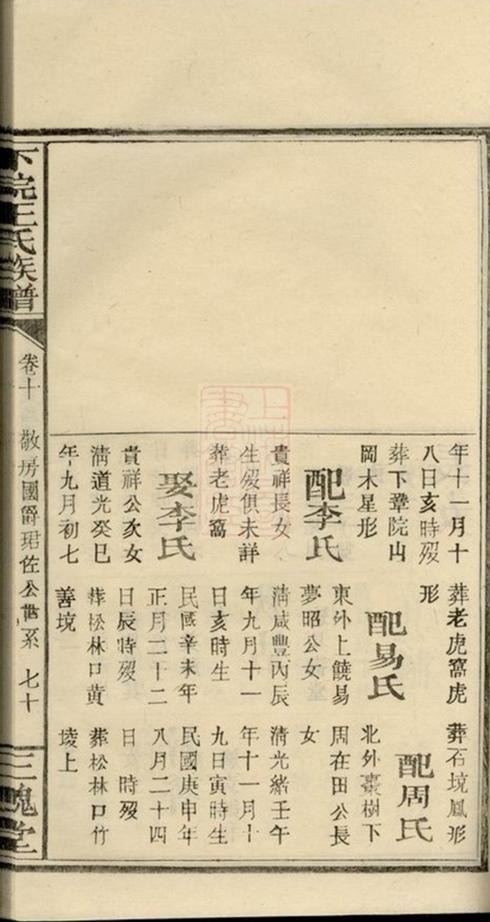 年十一月十
八日亥時歿
葬下章院山
岡木星形
配李氏
貴祥長女
生歿俱未詳
葬老虎窩
娶李氏
貴祥公次女
清道光癸巳
年九月初七
葬老虎窩虎
形
配易氏
東外上饒易
夢昭公女
清咸豐丙辰
年九月十一
日亥時生
民國辛未年
正月二十二
日辰時歿
葬松林口黄
善境
葬石境鳳形
配周氏
北外棗樹下
周在田公長
女
清光緒壬午
年十一月十
九日寅時生
民國庚申年
八月二十四
日 時歿
葬松林口竹
堎上
下院王氏族譜
卷十 敬房國爵珺佐公世系 七十
三槐堂